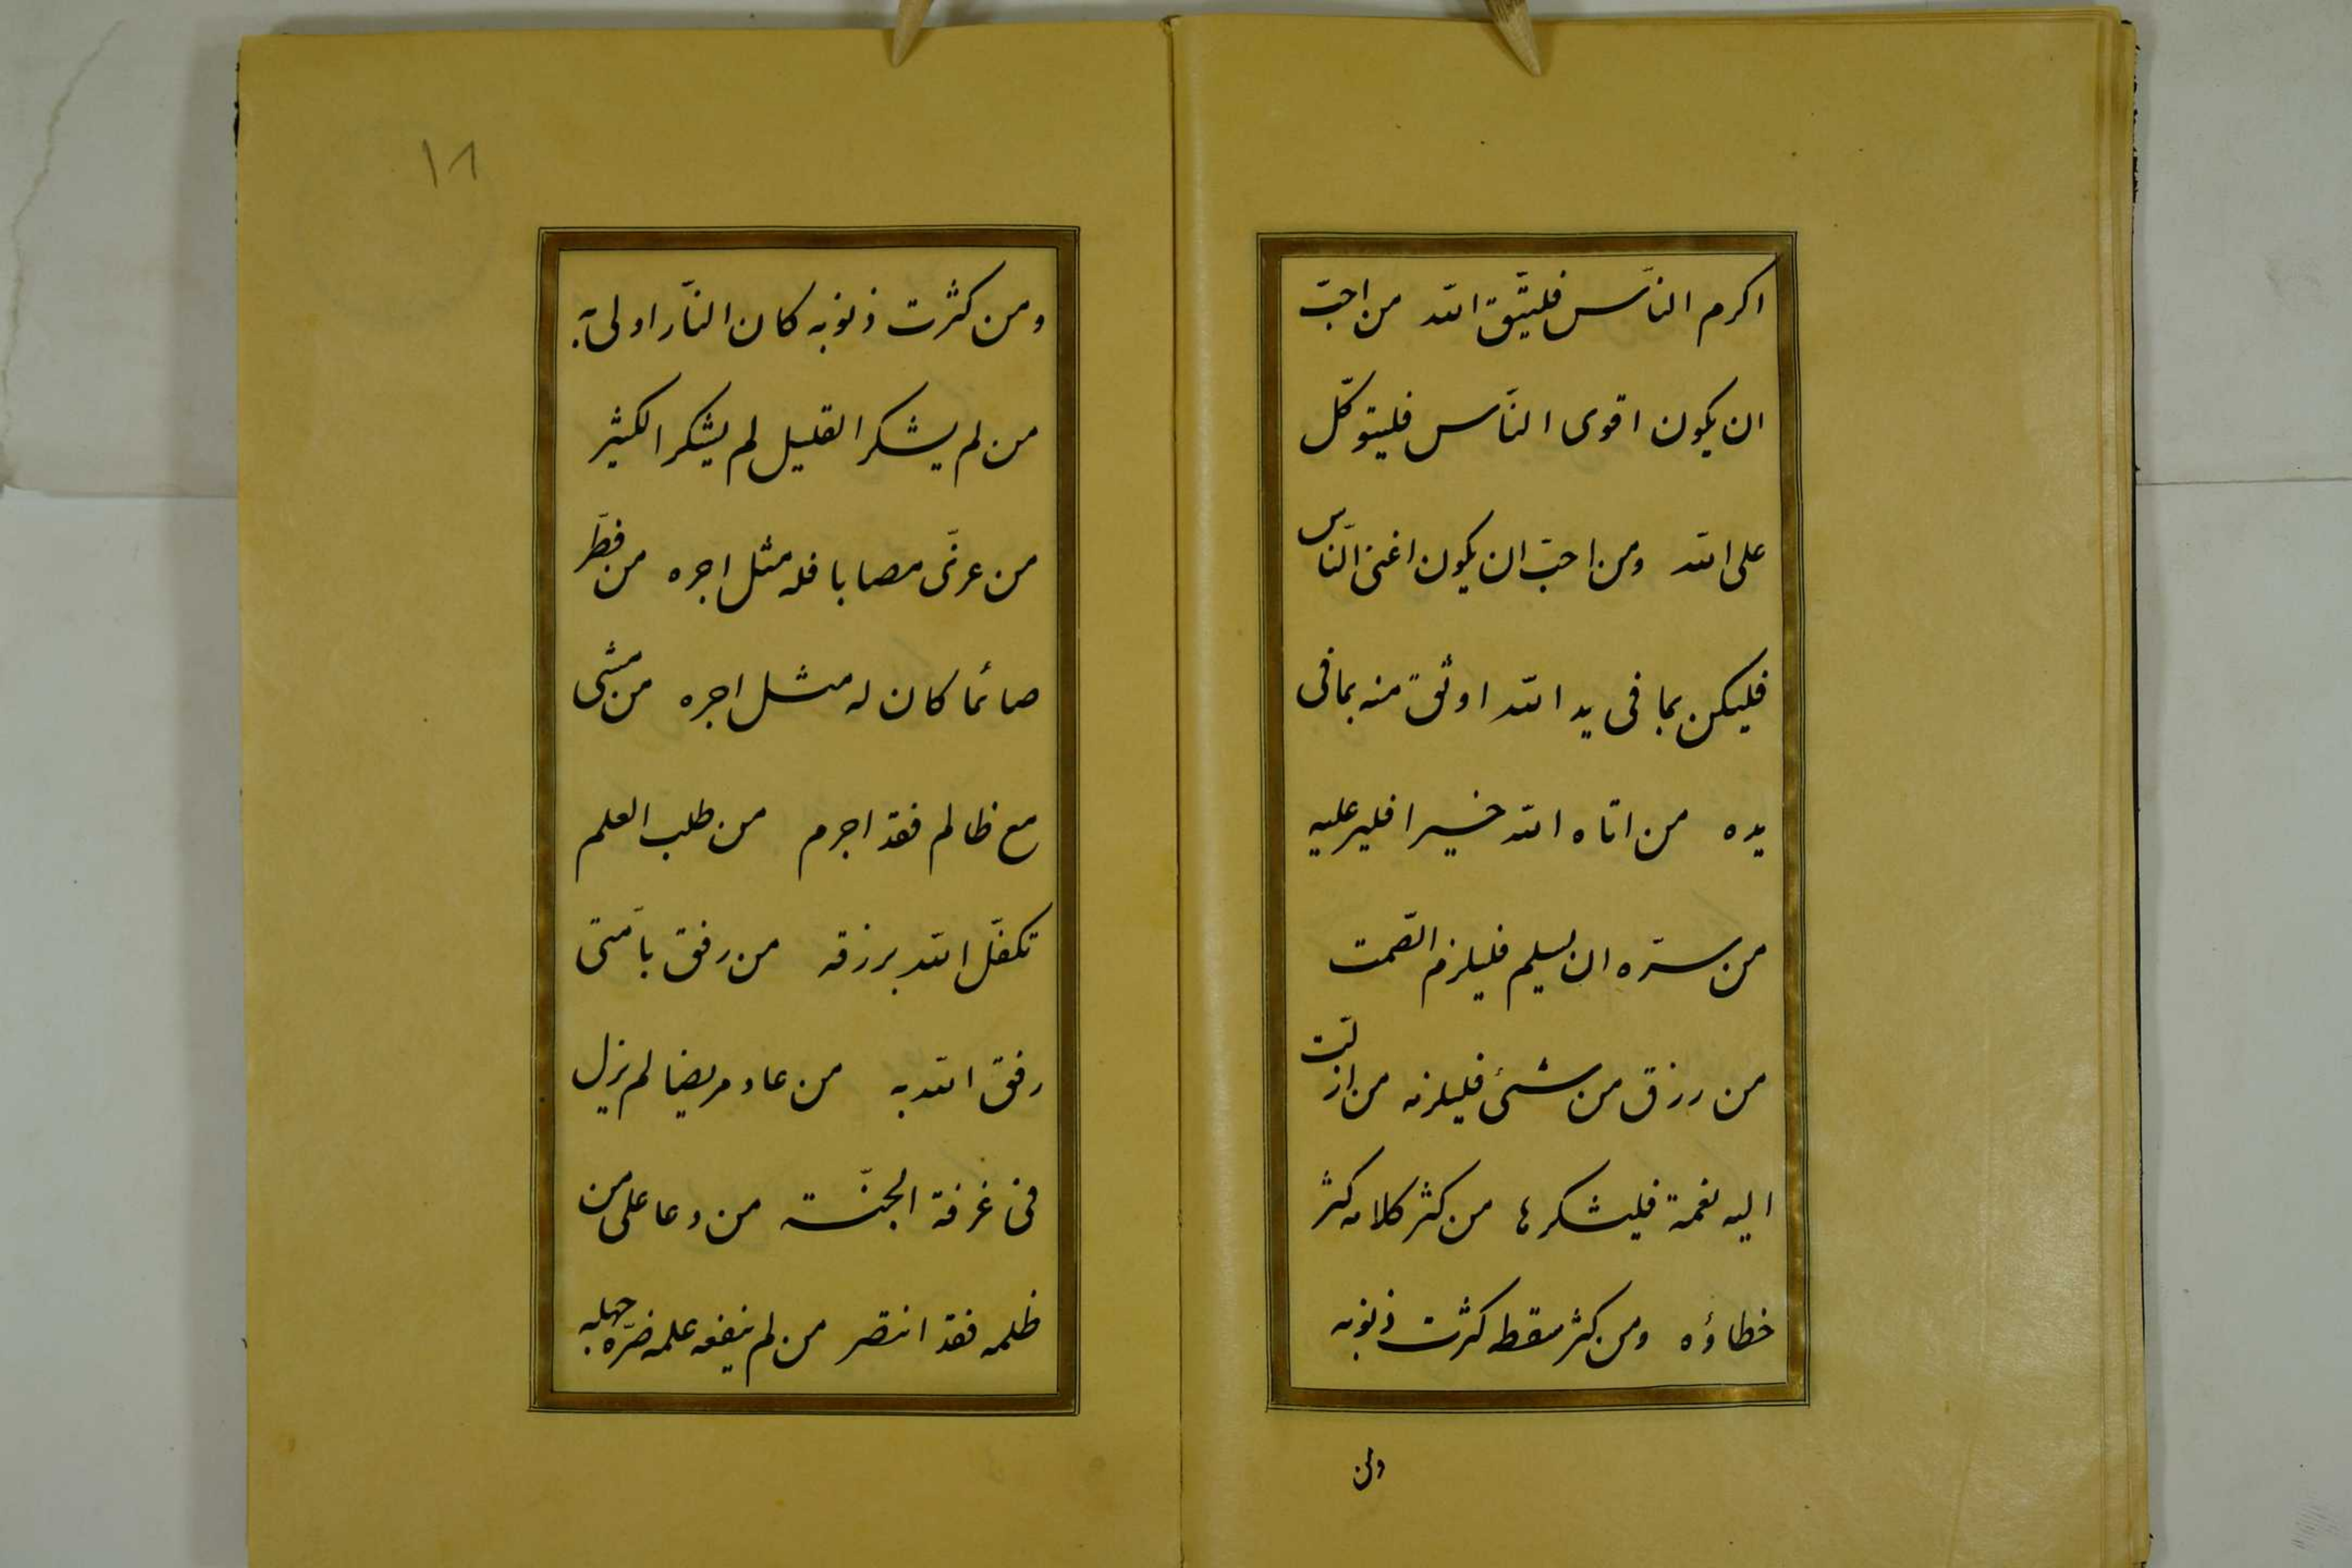 اكرم النّاس فليتّق الله من احبّ
ان يكون اقوى النّاس فليتوكّل
على الله ومن احبّ ان يكون اغنى النّاس
فليكن بما فى يد الله اوثق منه بما فى
يده من اتاه الله خيرا فلير عليه
من سرّه ان يسلم فليلزم الصّمت
من رزق من شئ فليلزمه من ازلّت
اليه نعمة فليشكرها من كثر كلامه كثر
خطاؤه ومن كثر سقطه كثرت ذنوبه
ومن
١٨
ومن كثرت ذنوبه كان النّار اولى به
من لم يشكر القليل لم يشكر الكثير
من عزّى مصابا فله مثل اجره من فطّر
صائما كان له مثل اجره من مشى
مع ظالم فقد اجرم من طلب العلم
تكفّل الله برزقه من رفق بامّتى
رفق الله به من عاد مريضا لم يزل
فى غرفة الجنّة من دعا على من
ظلمه فقد انتصر من لم ينفعه علمه ضرّه جهله